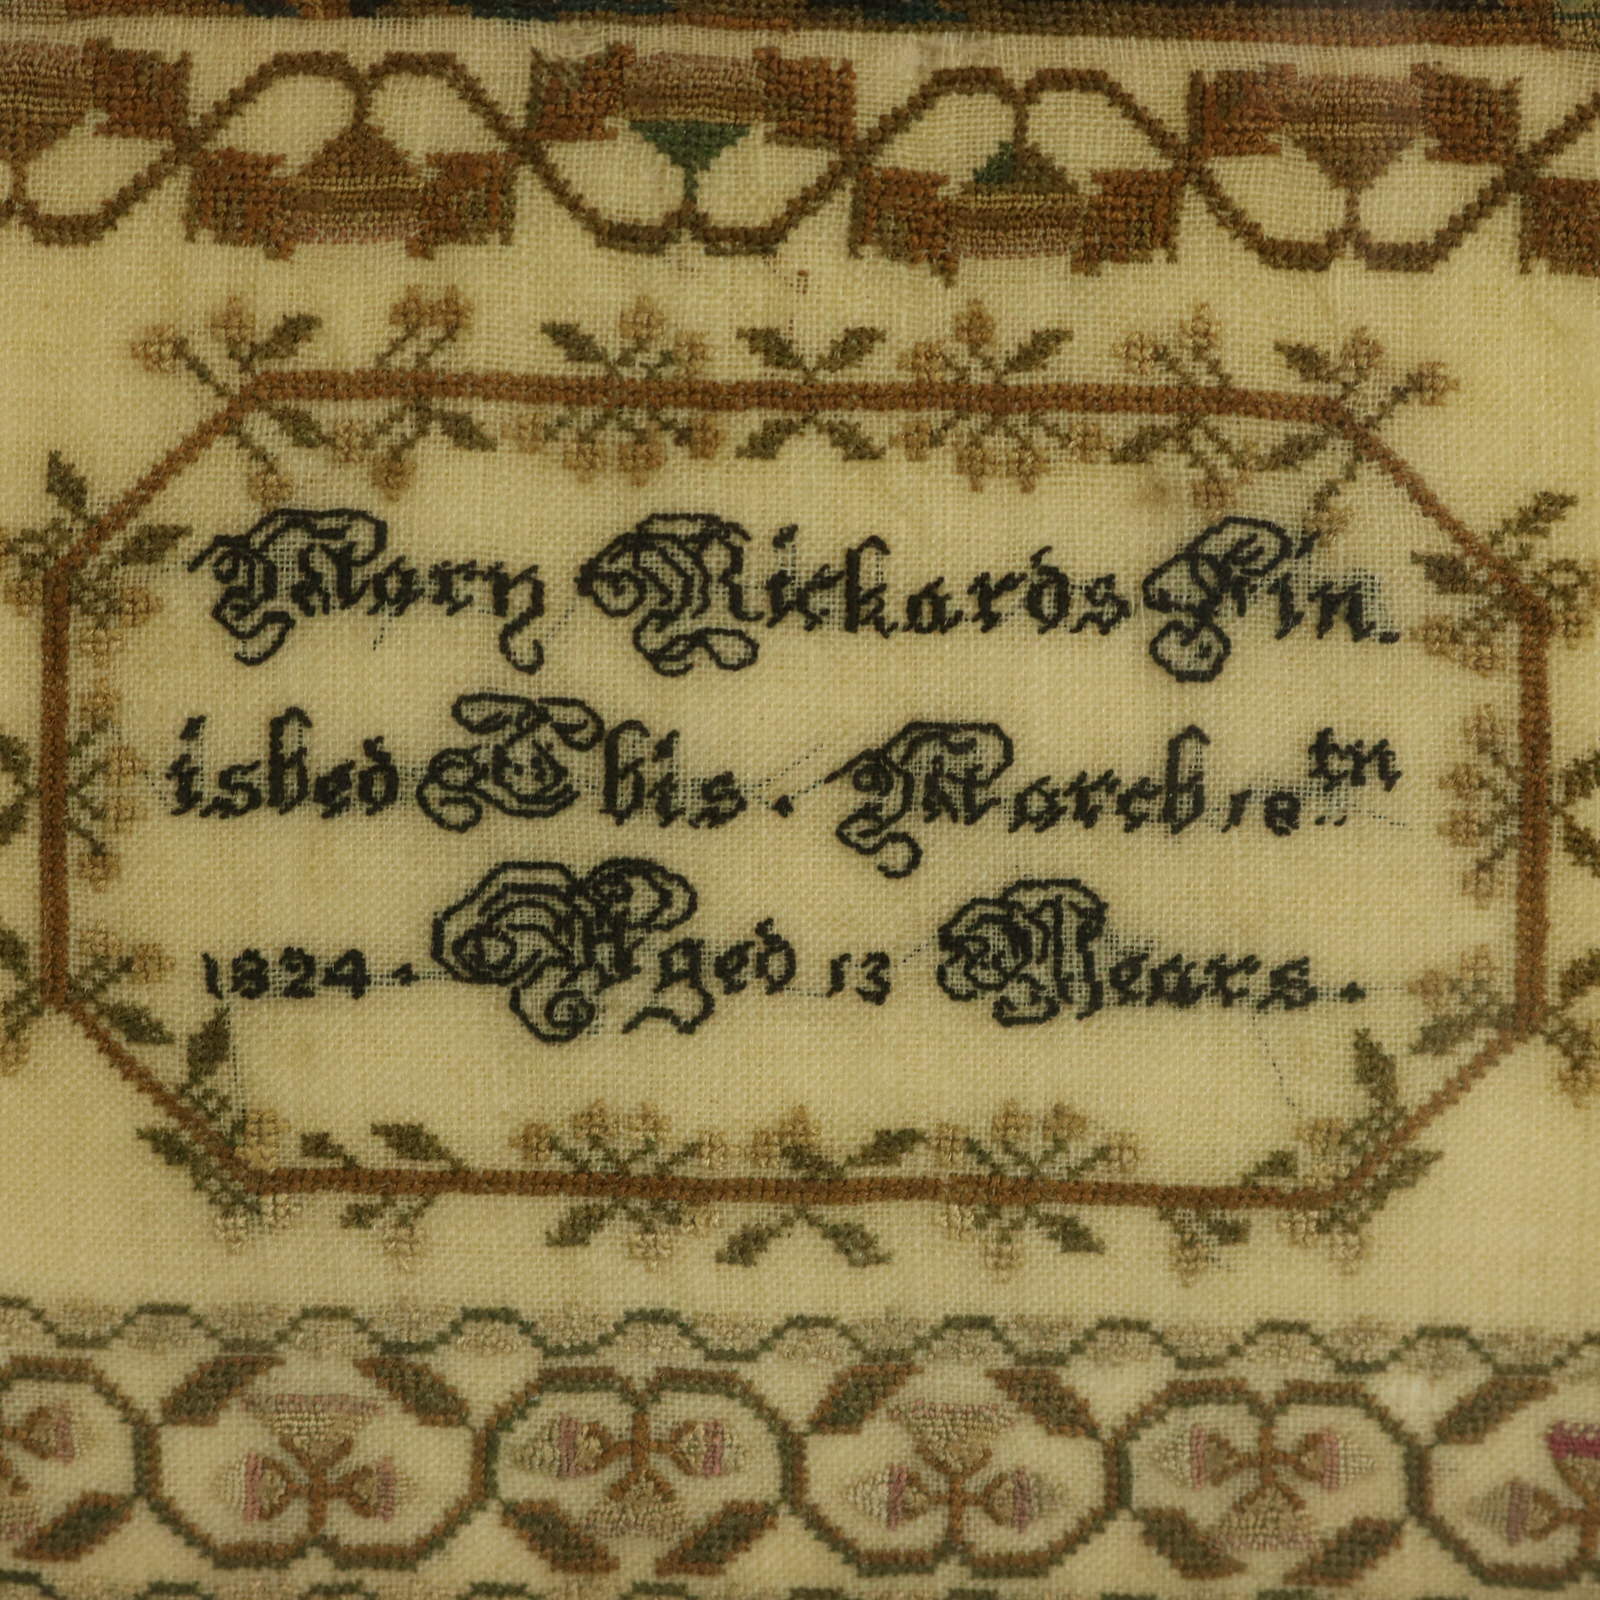 Mary Rickards Fin.
ished This. March 18th
1824. Aged 13 Years.